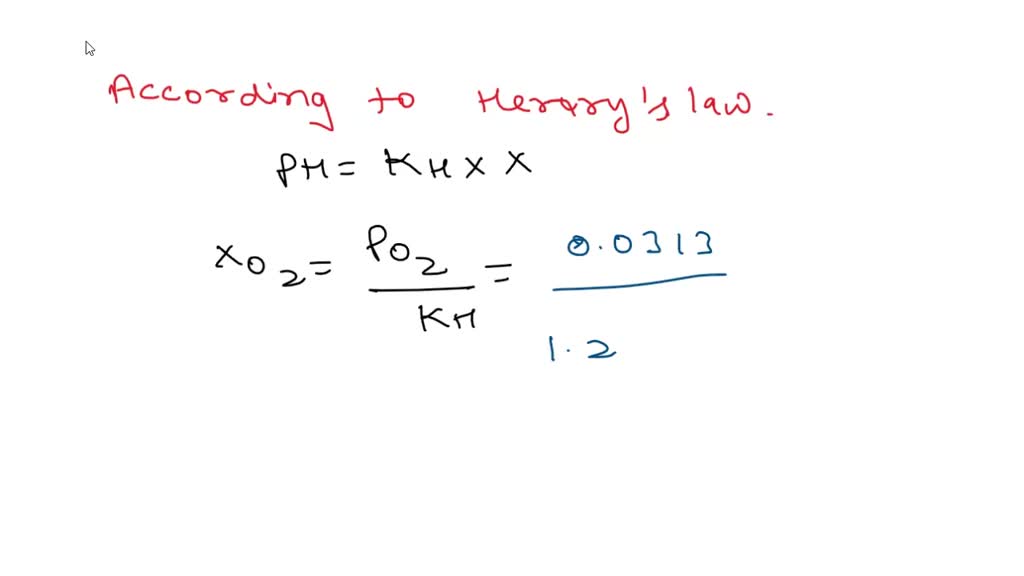 According to Henry's law.
PH = KH x X
XO2 = PO2 / KH = 0.0313 / 1.2